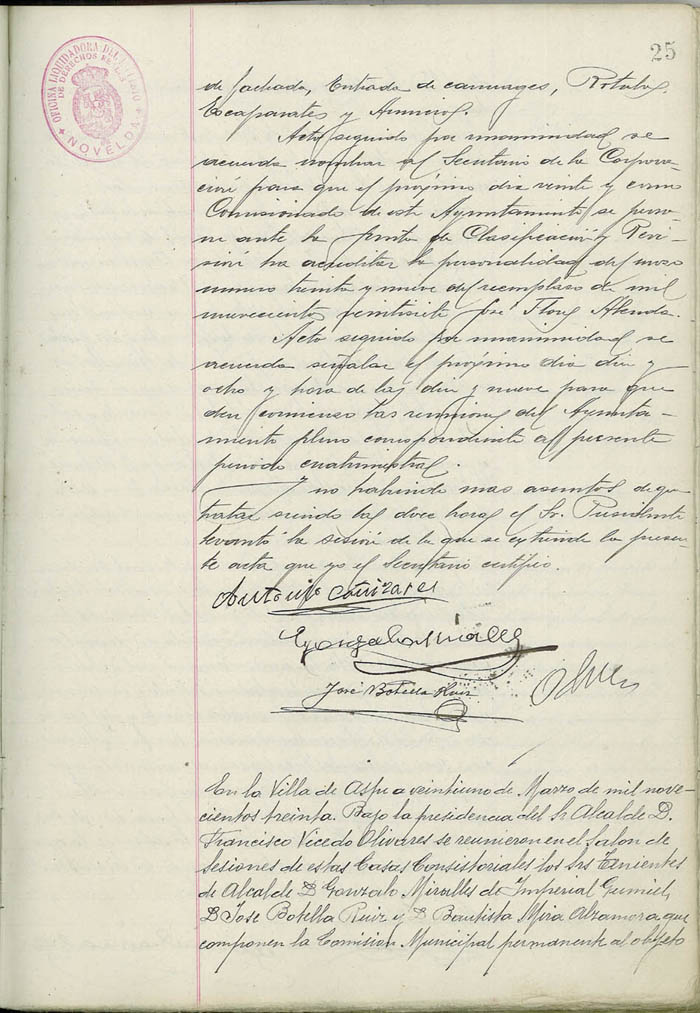 25
OFICINA LIQUIDADORA DEL
DE DERECHOS REALES
NOVELDA
de fachada, Entrada de carruages, Rotulos,
Escaparates y Anuncios.
Acto seguido por unanimidad se
acuerda nombrar al Secretario de la Corpora-
ción para que el próximo dia veinte y como
Comisionado de este Ayuntamiento se perso-
ne ante la Junta de Clasificación y Revi-
sión ha acreditar la personalidad del mozo
numero treinta y nueve del reemplazo de mil
nuevecientos veintisiete José Flores Alenda.
Acto seguido por unanimidad se
acuerda señalar el próximo dia diez y
ocho y hora de las diez y nueve para que
den comienzo las reuniones del Ayunta-
miento pleno correspondiente al presente
periodo cuatrimestral.
Y no habiendo mas asuntos de que
tratar siendo las doce horas el Sr. Presidente
levantó la sesión de la que se extiende la presen-
te acta que yo el Secretario certifico.
Antonio Cañizares
Gonzalo Miralles
José Botella Ruiz
En la Villa de Aspe a veintiuno de Marzo de mil nove-
cientos treinta. Bajo la presidencia del Sr Alcalde D.
Francisco Vicedo Olivares se reunieron en el Salon de
Sesiones de estas Casas Consistoriales los Srs Tenientes
de Alcalde D Gonzalo Miralles de Imperial Gumiel,
D Jose Botella Ruiz y D Bautista Mira Alzamora que
componen la Comision Municipal permanente al objeto